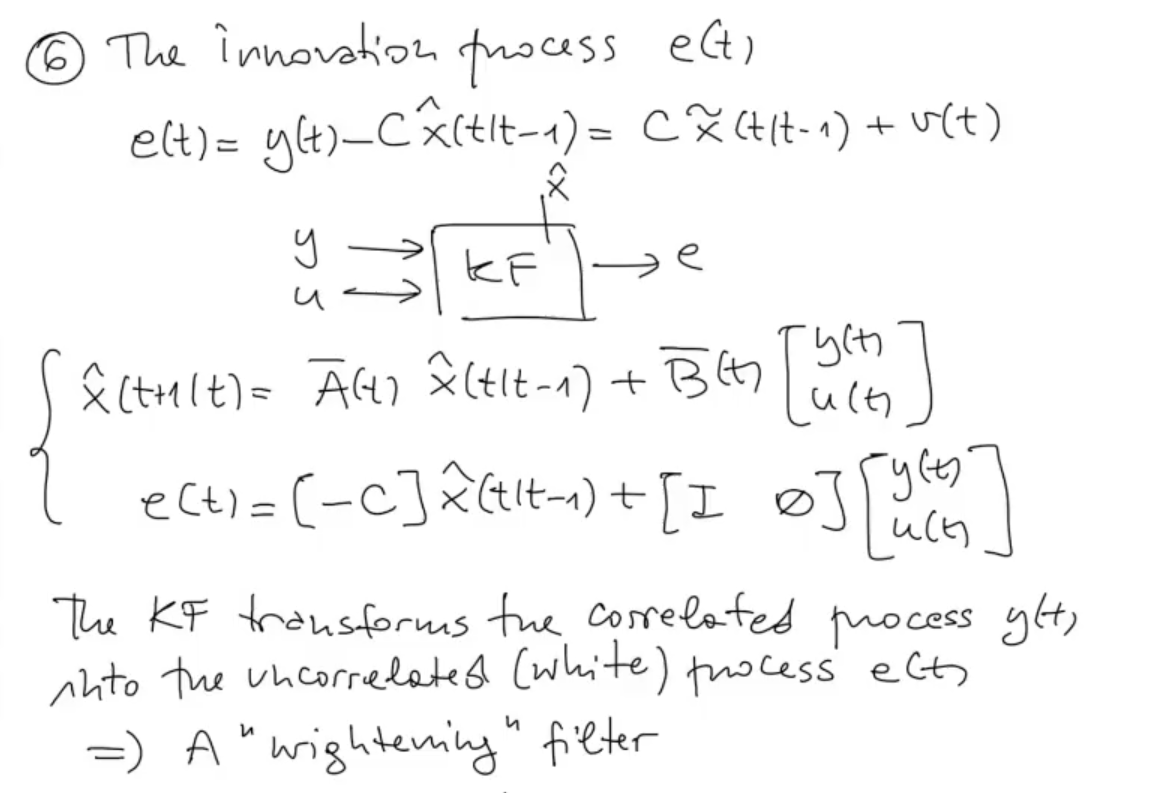 ⑥ The innovation process e(t)
e(t) = y(t) - C x̂(t|t-1) = C x̃(t|t-1) + v(t)
x̂
y → KF → e
u →
x̂(t+1|t) = Ā(t) x̂(t|t-1) + B̄(t) [y(t) u(t)]
e(t) = [-C] x̂(t|t-1) + [I ∅] [y(t) u(t)]
The KF transforms the correlated process y(t)
into the uncorrelated (white) process e(t)
=) A "wightening" filter